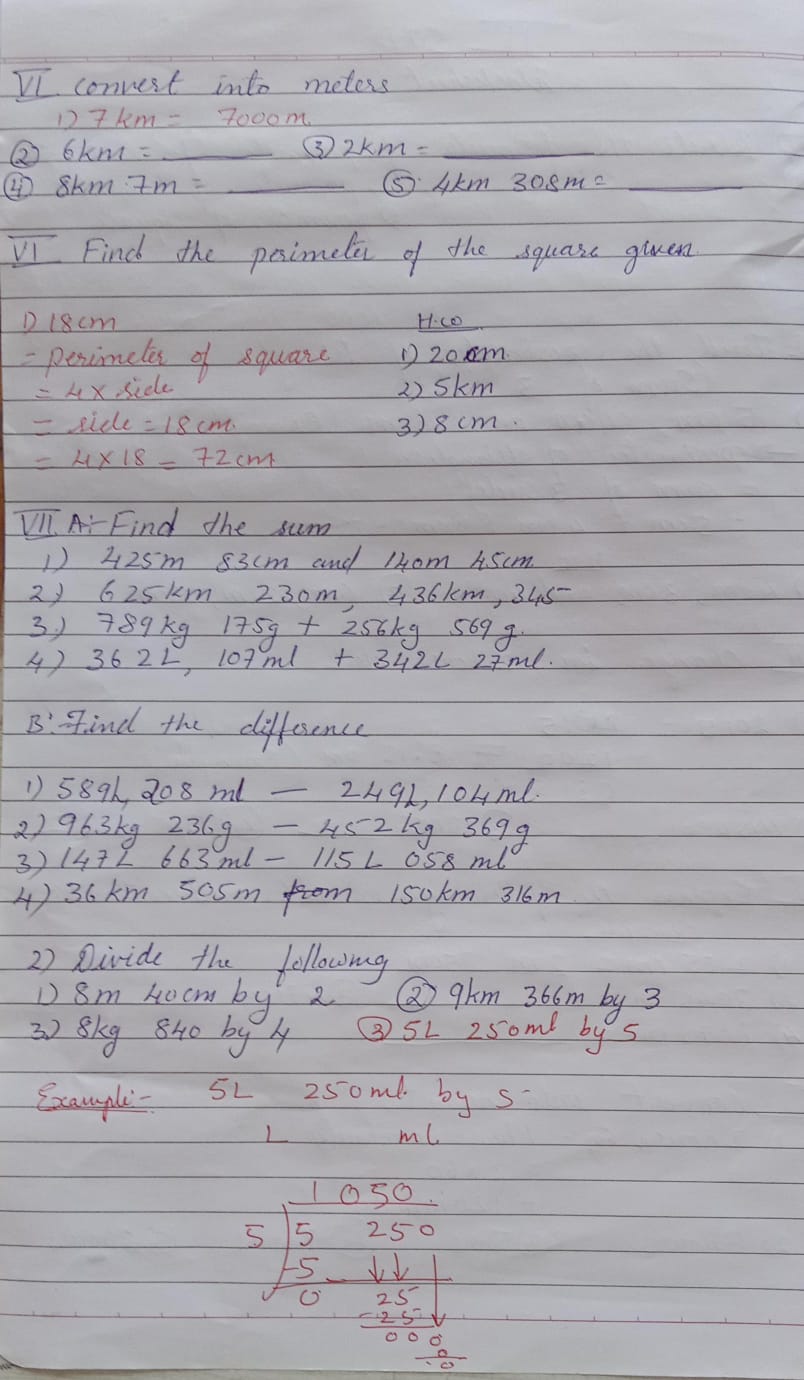 VI convert into meters
1) 7km = 7000m.
② 6km = ______ ③ 2km = ______
④ 8km 7m = ______ ⑤ 4km 308m = ______
VI Find the perimeter of the square given.
1) 18cm H.co
= perimeter of square 1) 20cm.
= 4 x side 2) 5km
= side = 18cm. 3) 8cm.
= 4 x 18 = 72cm
VII A:- Find the sum
1) 425m 83cm and 140m 45cm
2) 625km 230m, 436km, 345
3) 789kg 175g + 256kg 569g.
4) 362L, 107ml + 342L 27ml.
B:- Find the difference
1) 589L, 208 ml — 249L, 104ml.
2) 963kg 236g — 452kg 369g
3) 147L 663ml — 115L 058ml
4) 36km 505m from 150km 316m
2) Divide the following
1) 8m 40cm by 2 ② 9km 366m by 3
3) 8kg 840 by 4 ③ 5L 250ml by 5
Example:- 5L 250ml. by 5
L ml
1 050.
5 5 250
-5
0 25
-25
000
0
0